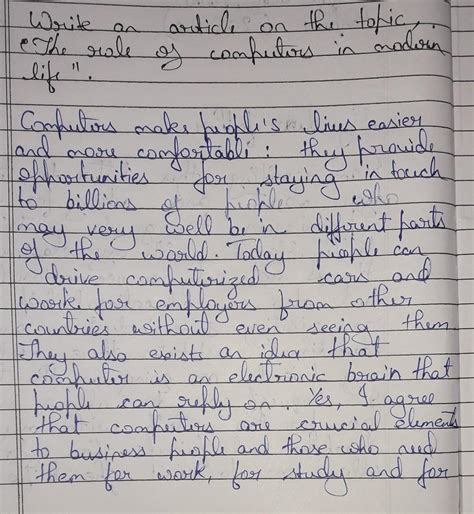 Write an article on the topic,
"The role of computers in modern
life".
Computers make people's lives easier
and more comfortable : they provide
opportunities for staying in touch
to billions of people who
may very well be in different parts
of the world. Today people can
drive computerized cars and
work for employers from other
countries without even seeing them
They also exists an idea that
computer is an electronic brain that
people can reply on. Yes, I agree
that computers are crucial elements
to business people and those who need
them for work, for study and for